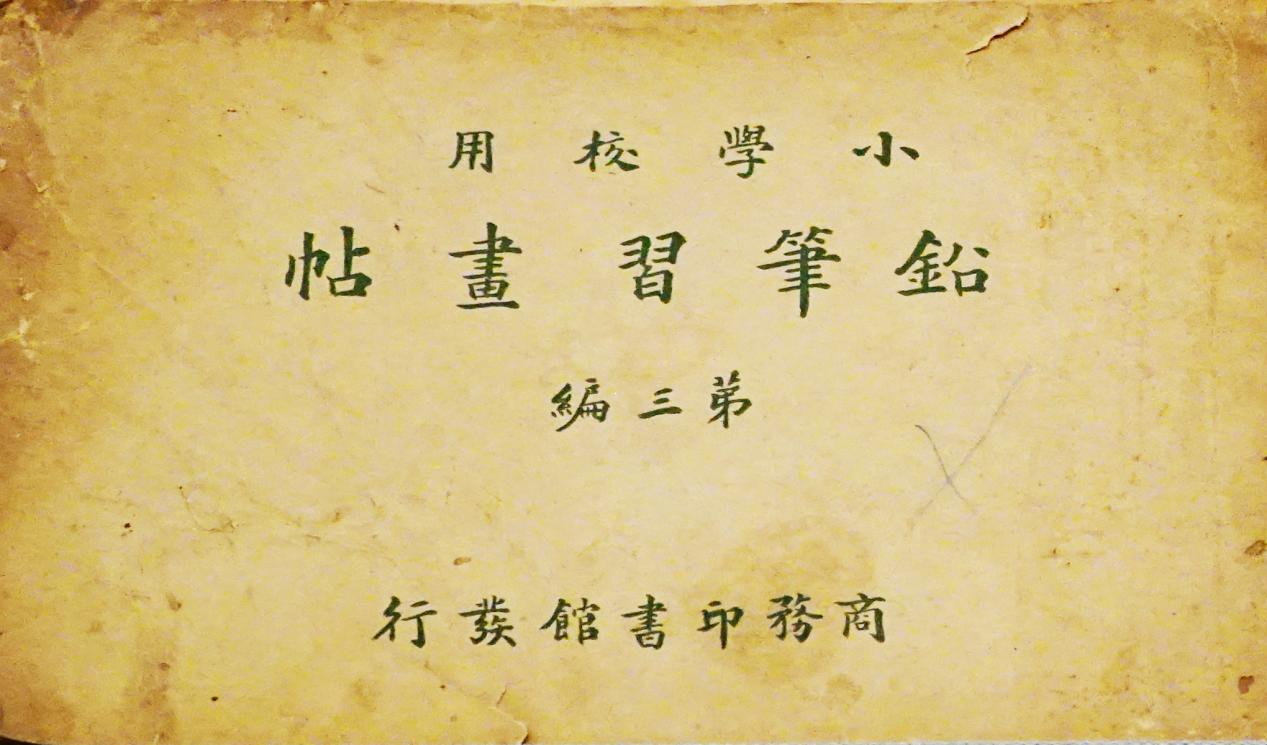 小學校用
鉛筆習畫帖
苐三編
商務印書館發行